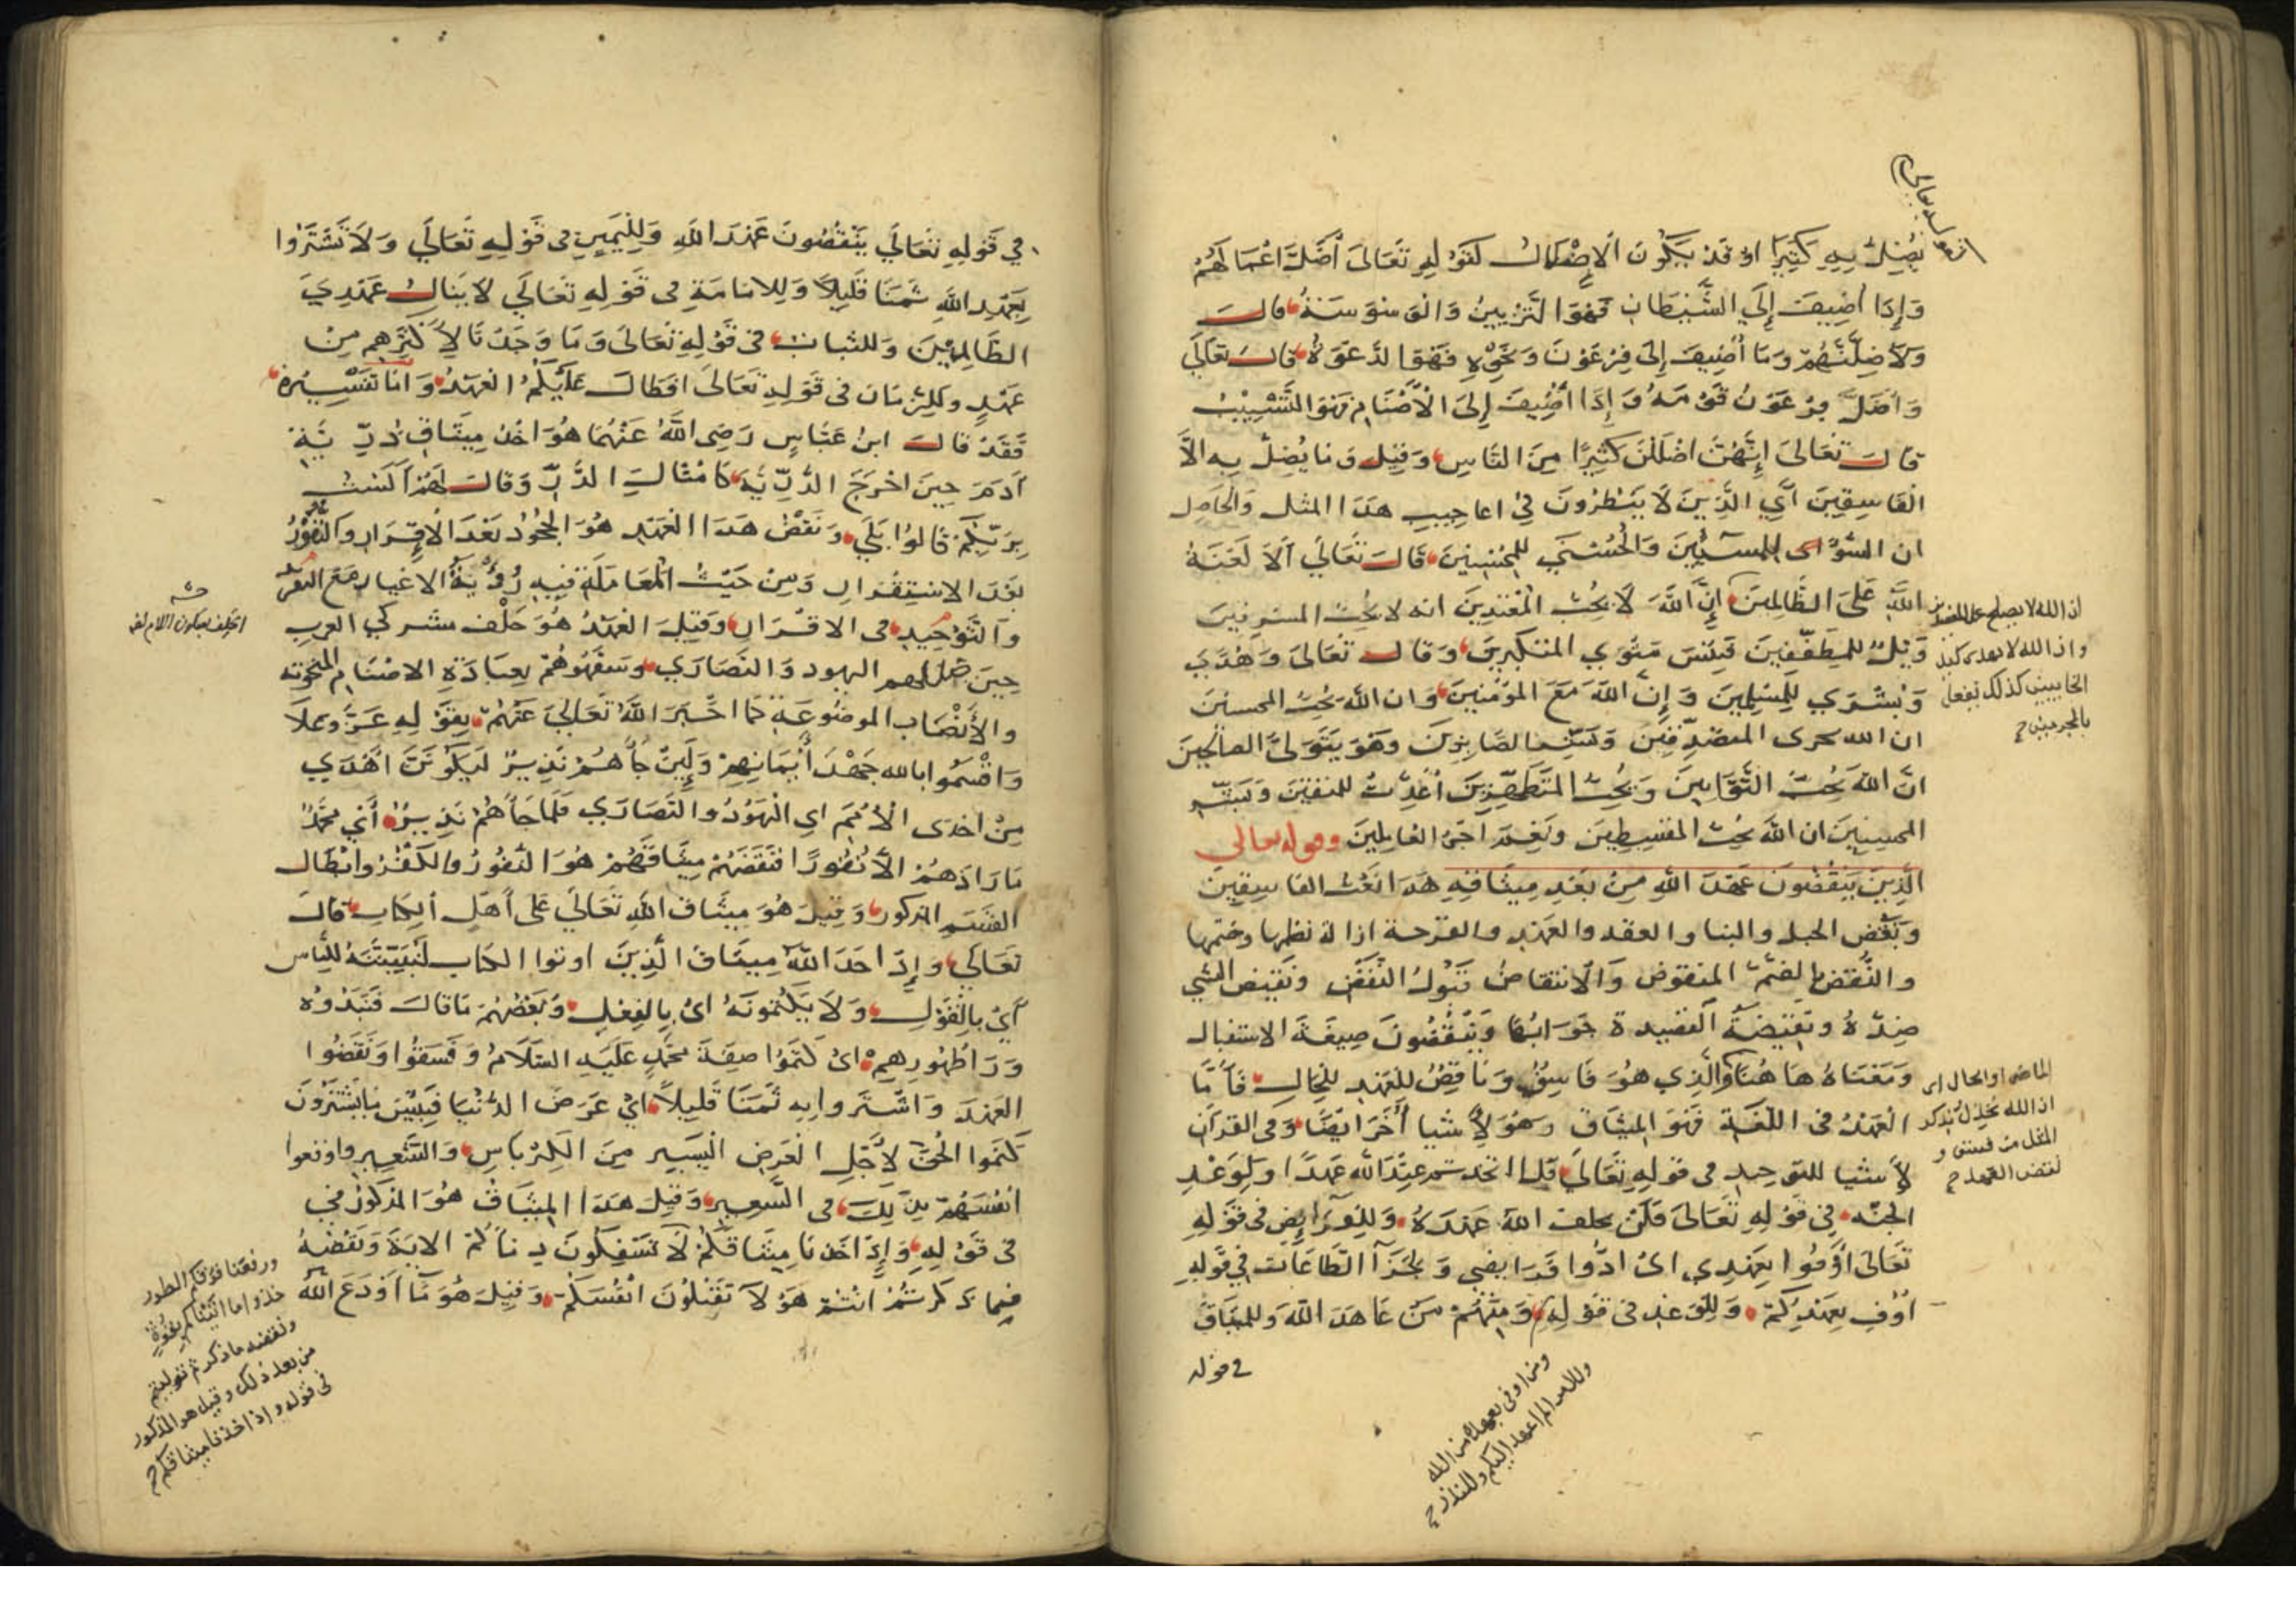 يُضِلُّ بِهِ كَثِيرًا او قد يَكُونُ الإِضْلالُ كقَوْلِهِ تَعَالَى أَضَلَّ اعْمَالَهُمْ
وَإِذَا أُضِيفَ إِلَى الشَّيْطَانِ فَهُوَ التَّزْيِينُ وَالْوَسْوَسَةُ قال
وَلَأُضِلَّنَّهُمْ وَمَا أُضِيفَ إِلَى فِرْعَوْنَ وَنَحْوِهِ فَهُوَ الدَّعْوَةُ قال تعَالَى
وَأَضَلَّ فِرْعَوْنُ قَوْمَهُ وَإِذَا أُضِيفَ إِلَى الْأَصْنَامِ فَهُوَ التَّسْبِيْبُ
قال تعَالَى إِنَّهُنَّ اضْلَلْنَ كَثِيرًا مِنَ النَّاسِ وَقِيلَ وَمَا يُضِلُّ بِهِ الاَّ
الْفَاسِقِينَ أَيِ الَّذِينَ لَا يَنْظُرُونَ فِي اعاجيبِ هذا المثل وَالحَاصِل
ان السُّوْأى لِلمسيئينَ وَالْحُسْنَى للمحسنينَ قَالَ تَعَالَى أَلَا لَعْنَةُ
اللَّهِ عَلَى الظَّالِمِينَ إِنَّ اللَّهَ لَا يُحِبُّ الْمُعْتَدِينَ انه لا يُحِبُّ المسرفينَ
وَيْلٌ للمطَفِّفِينَ فَبِئْسَ مَثْوَى المتكبرينَ وَقَالَ تعَالَى وَهُدًى
وَبُشْرَى لِلْمُسْلِمِينَ وَإِنَّ اللَّهَ مَعَ المؤْمِنِينَ وَان اللَّهَ يُحِبُّ المحسنينَ
ان الله يجزى المتصدِّقينَ وَبَشِّرِ الصَّابِرِينَ وَهُوَ يَتَوَلَّى الصالحينَ
انَّ اللهَ يُحِبُّ التَّوَّابِينَ وَيُحِبُّ المتَطَهِّرِينَ أُعِدَّتْ للمتقينَ وَبَشِّرِ
المحسنينَ ان اللَّهَ يُحِبُّ المقسِطِينَ وَنِعْمَ اجْرُ العَامِلِينَ وقوله تعالى
الَّذِينَ يَنْقُضُونَ عَهْدَ اللَّهِ مِنْ بَعْدِ مِيثَاقِهِ هَذَا نَعْتُ الفَاسِقِينَ
وَنَقْضُ الحبل والبنا والعقد والعَهْدِ والقرحة ازالة نظمها وختمها
والنُّقْضُ المنقوض وَالانتقاضُ قَبُولُ النَّقْضِ وَنَقِيضُ الشي
ضِدُّهُ وَنقيضَةُ القصيدة جَوَابُهَا وَيَنْقُضُونَ صِيغَةُ الاستقبال
وَمَعْنَاهُ هَاهُنَا وَالَّذِي هُوَ فَاسِقٌ وَنَاقِضٌ للعَهْدِ لِلْحَالِ فَأَمَّا
الْعَهْدُ فى اللُّغَةِ فَهُوَ المِيثَاق وهُوَ لِأَشْيَا أُخَرَ ايْضًا وَفى القرآن
لِأَشْيَا للتوحيد فى قوْلِهِ تَعَالَى قل اتخذتم عِنْدَ اللَّهِ عَهْدًا وَلِوَعْدِ
الجنّه فِي قَوْلِهِ تَعَالَى فَلَنْ يخلف اللهُ عَهْدَهُ وَلِلْفَرَايِضِ فى قَوْلِهِ
تَعَالَى أَوْفُوا بِعَهْدِي اىْ ادُّوا فَرَايضِي وَلجَزَآءِ الطَّاعَات فِي قَوْلِهِ
أُوْفِ بِعَهْدِكُمْ وَلِلْوَعْدِ فى قَوْلِهِ وَمِنْهُمْ مَنْ عَاهَدَ اللَّهَ وَللميثَاقِ
فى قوله
ان الله لا يصلح عمل المفسدين
وان الله لا يهدى كيد
الخايينين كذلك نفعل
بالمجرمين
الماضى او الحال اى
لنقض العهد
ومن اوفى بعهده من الله
الم اعهد اليكم وللنذر
فِي قَوْلِهِ تعَالَى يَنْقُضُونَ عَهْدَ اللهِ وَلِلْيَمِينِ فى قَوْلِهِ تَعَالَى وَلَا تَشْتَرُوا
بِعَهْدِ اللَّهِ ثَمَنًا قَلِيلًا وَلِلامَامَةِ فى قَوْلِهِ تعَالَى لا يَنَالُ عَهْدِي
الظَّالِمِيْنَ وَللثبات فى قَوْلِهِ تَعَالَى وَمَا وَجَدْنَا لِأَكْثَرِهِمْ مِنْ
عَهْدٍ وَللزمَان فى قَوْلِهِ تَعَالَى افَطَالَ عَلَيْكُمُ العَهْدُ وَامَّا تَفْسِيْرُهُ
فَقَدْ قَالَ ابنُ عَبَّاسٍ رَضِى اللَّهُ عَنْهُمَا هُوَ اخْذُ مِيثَاقِ ذُرِّيَّةِ
آدَمَ حِينَ اخْرَجَ الذُّرِّيَّةَ كَامْثَالِ الذَّرِّ وَقَالَ لَهُمْ أَلَسْتُ
بِرَبِّكُمْ قَالُوا بَلَى وَنَقْضُ هَذَا العَهْدِ هُوَ الجُحُودُ بَعْدَ الإِقْرَارِ وَالنُّفُوْرُ
بَعْدَ الاسْتِقْرَارِ وَمِنْ حَيْثُ المُعَامَلَةِ فِيهِ رُؤْيَةُ الاغيار مَعَ
وَالتَّوْحِيدِ فى الاقْرَارِ وَقِيلَ العَهْدُ هُوَ حَلْف مشركي العرب
حِينَ اليهود وَالنَّصَارَى وسَفَّهُوهُمْ بِعِبَادَةِ الاصْنَامِ المنحوته
وَالأَنْصَابِ الموضُوعَةِ كَمَا اخْبَرَ اللَّهُ تَعَالَى عَنْهُمْ بِقَوْلِهِ عَزَّ وَعَلَا
وَاقْسَمُوا بالله جَهْدَ أَيْمَانِهِمْ وَلَئِنْ جَآءَهُمْ نَذِيرٌ لَيَكُونُنَّ أَهْدَى
مِنْ احْدَى الْأُمَمِ اىِ الْيَهُوْدُ وَالنَّصَارَى فَلَمَّا جَآءَهُمْ نَذِيرٌ أَيْ مُحَمَّدٌ
مَا زَادَهُمْ الاَّ نُفُورًا فَنَقْضُهُمْ مِيثَاقَهُمْ هُوَ النُّفُورُ وَالكُفْرُ وابْطَال
القَسَمِ المذكور وَقِيلَ هُوَ مِيثَاق اللَّهِ تَعَالَى عَلَى أَهْلِ الكِتَابِ قَالَ
تَعَالَى وَإِذْ اخَذَ اللَّهُ مِيثَاقَ الَّذِينَ اوتوا الكتاب لَتُبَيِّنُنَّهُ لِلنَّاسِ
أَيْ بِالْقَوْلِ وَلَا يَكْتُمُونَهُ اىْ بِالفِعْلِ وَنَقْضُهُمْ مَا قَالَ فَنَبَذُوهُ
وَرَاءَ ظُهُورِهِمْ اىْ كَتَمُوا صِفَةَ مُحَمَّدٍ عَلَيْهِ السَّلَامُ وَفَسَقُوا وَنَقَضُوا
العَهْدَ وَاشْتَرَوا بِهِ ثَمَنًا قَلِيلًا أيْ عَرَضَ الدُّنْيَا فَبِئْسَ مَا يَشْتَرُونَ
كَتَمُوا الْحَقَّ لِأَجْلِ العَرَضِ الْيَسِيرِ مِنَ الكِرْبَاسِ وَالشَّعِيرِ واوقعوا
انْفُسَهُمْ بِذَلِكَ فى السَّعِيرِ وَقِيلَ هَذَا المِيثَاقُ هُوَ المذكُورُ في
فى قَوْلِهِ وَإِذْ اخَذْنَا مِيْثَاقَكُمْ لَا تَسْفِكُونَ دِمَآءَكُمْ الايَةَ وَنَقْضُهُ
فيما ذكر ثُمَّ انْتُمْ هَؤُلَاءِ تَقْتُلُوْنَ انْفُسَكُمْ وَقِيلَ هُوَ مَا أَوْدَعَ اللَّهُ
الحَلِف بسكون اللام
ورفعْنا فوْقكم الطور
خذوا ما آتَيْنَاكُمْ بِقُوَّةٍ
ونقضه ما ذكر ثم توليتم
من بعد ذلك وقيل هو المذكور
فى قوله واذ اخذنا ميثاقكم